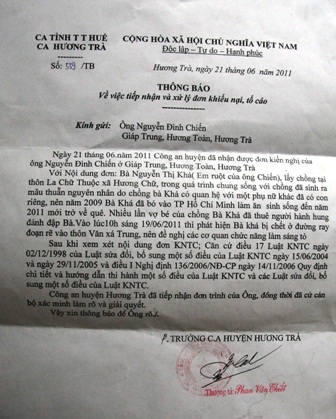 CA TỈNH T T HUẾ
CỘNG HÒA XÃ HỘI CHỦ NGHĨA VIỆT NAM
CA HƯƠNG TRÀ
Độc lập – Tự do – Hạnh phúc
Số: /TB
Hương Trà, ngày 21 tháng 06 năm 2011
THÔNG BÁO
Về việc tiếp nhận và xử lý đơn khiếu nại, tố cáo
Kính gửi: Ông Nguyễn Đình Chiến
Giáp Trung, Hương Toàn, Hương Trà
Ngày 21 tháng 06.năm 2011 Công an huyện đã nhận được đơn kiến nghị của
ông Nguyễn Đình Chiến ở Giáp Trung, Hương Toàn, Hương Trà
Với Nội dung đơn: Bà Nguyễn Thị Khá( Em ruột của ông Chiến), lấy chồng tại
thôn La Chữ Thuộc xã Hương Chữ, trong quá trình chung sống với chồng đã sinh ra
mâu thuẫn nguyên nhân do chồng bà Khá có quan hệ với một phụ nữ khác đã có con
riêng, nên năm 2009 Bà Khá đã bỏ vào TP Hồ Chí Minh làm ăn sinh sống đến năm
2011 mới trở về quê. Nhiều lần vợ bé của chồng Bà Khá đã thuê người hành hung
đánh đập Bà.Vào lúc10h sáng 19/06/2011 thì phát hiện Bà Khá bị chết ở đường ray
đoạn rẽ vào thôn Văn xá Trung, nên đề nghị các cơ quan chức năng làm sáng tỏ
Sau khi xem xét nội dung đơn KNTC; Căn cứ điều 17 Luật KNTC ngày
02/12/1998 của Luật sửa đổi, bổ sung một số điều của Luật KNTC ngày 15/06/2004
và ngày 29/11/2005 và điều I Nghị định 136/2006/NĐ-CP ngày 14/11/2006 Quy định
chi tiết và hướng dẫn thi hành một số điều của Luật KNTC và các Luật sửa đổi, bổ
sung một số điều của Luật KNTC.
Công an huyện Hương Trà đã tiếp nhận đơn trình của Ông, đồng thời đã cử cán
bộ xác minh làm rõ và giải quyết.
Vậy xin thông báo để Ông rõ./.
TRƯỞNG C.A HUYỆN HƯƠNG TRÀ
Thượng tá: Phan Văn Thiết